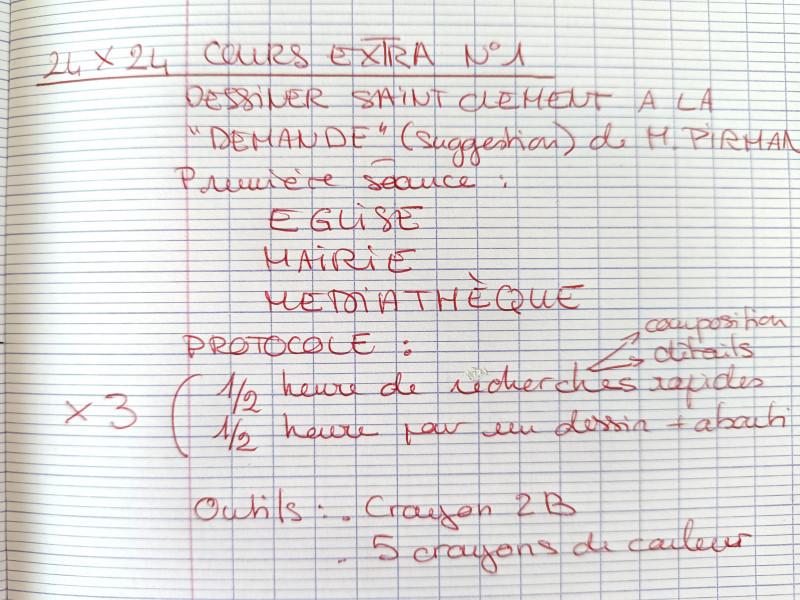 24 x 24 COURS EXTRA N°1
DESSINER SAINT CLEMENT A LA
"DEMANDE" (suggestion) de M. PIRMAN
Première séance :
EGLISE
MAIRIE
MEDIATHÈQUE
PROTOCOLE :
composition
détails
x 3 ( 1/2 heure de recherches rapides
1/2 heure pour un dessin + abouti
Outils : . Crayon 2B
. 5 crayons de couleur